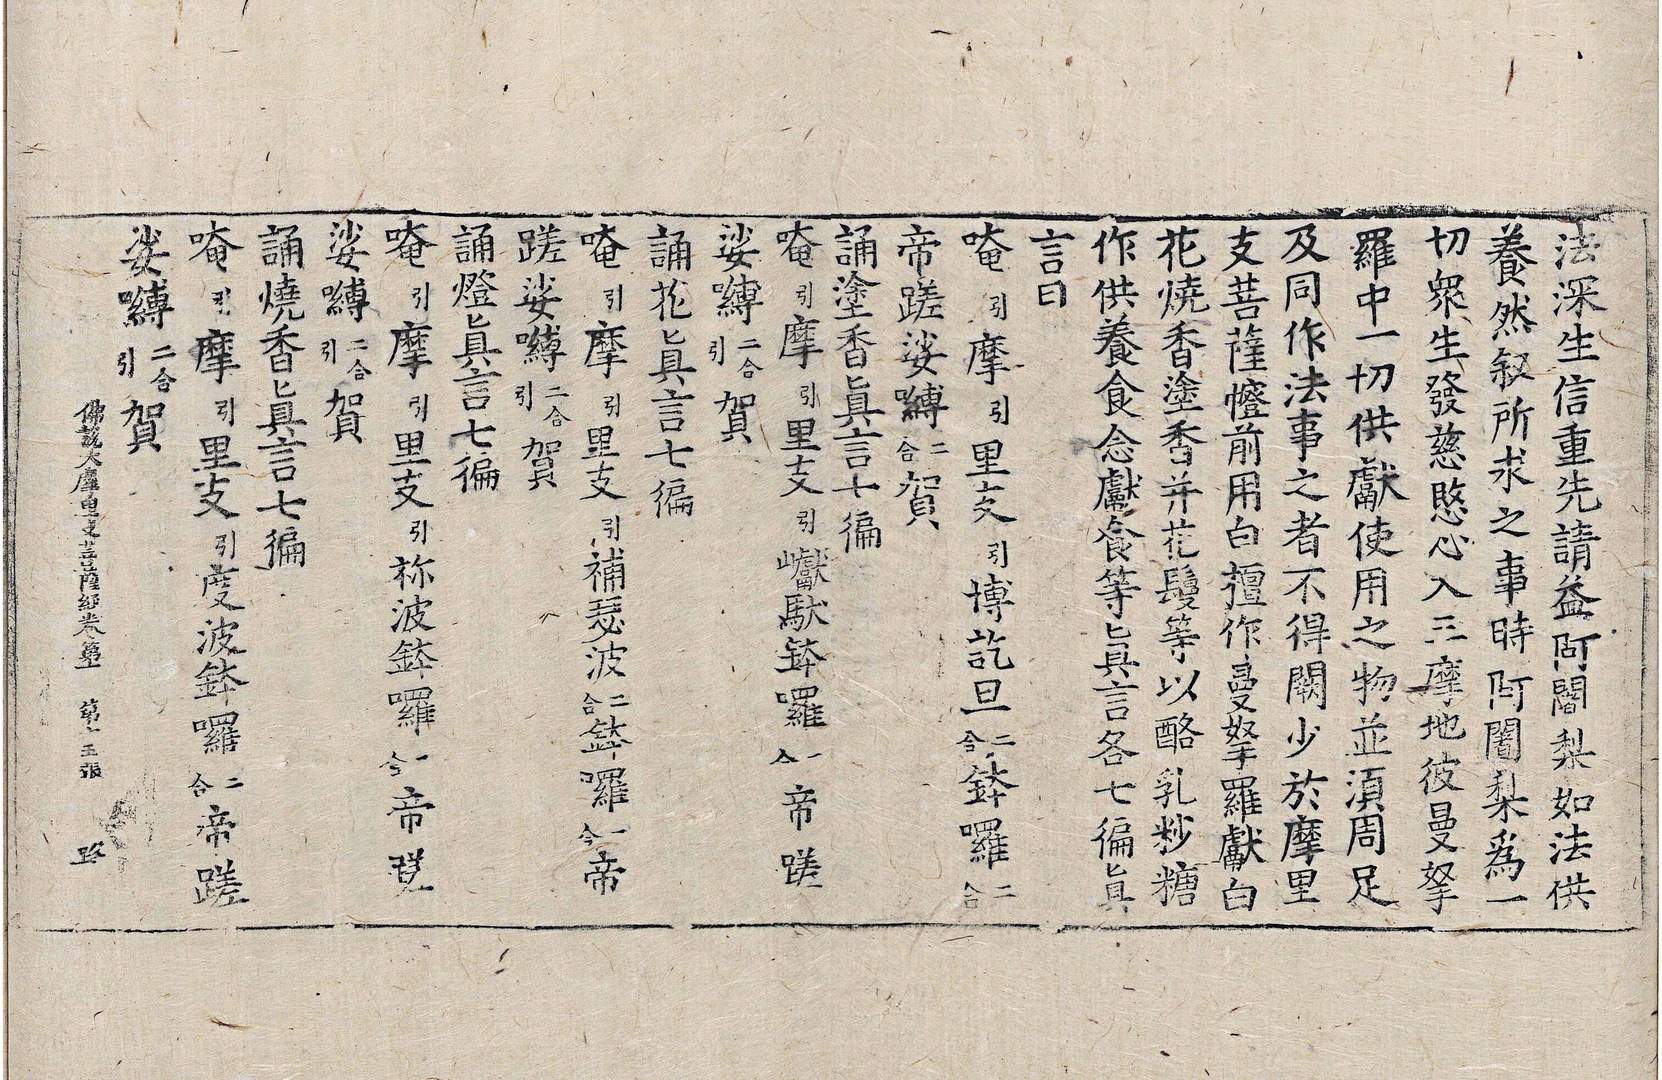 法深生信重先請益阿闍梨如法供
養然叙所求之事時阿闍梨爲一
切衆生發慈愍心入三摩地彼曼拏
羅中一切供獻使用之物並湏周足
及同作法事之者不得闕少於摩里
支菩薩幢前用白擅作曼拏羅獻白
花燒香塗香并花鬘等以酪乳粆糖
作供養食念獻食等眞言各七徧眞
言曰
唵引摩引里支引博訖旦二合鉢囉二合
帝蹉娑嚩二合賀
誦塗香眞言七徧
唵引摩引里支引巘馱鉢囉一合帝蹉
娑嚩二合引賀
誦花眞言七徧
唵引摩引里支引補瑟波二合鉢囉一合帝
蹉娑嚩二合引賀
誦燈眞言七徧
唵引摩引里支引祢波鉢囉一合帝蹉
娑嚩二合引賀
誦燒香眞言七徧
唵引摩引里支引度波鉢囉二合帝蹉
娑嚩二合引賀
佛說大摩里支菩薩經卷第 第十五張 路